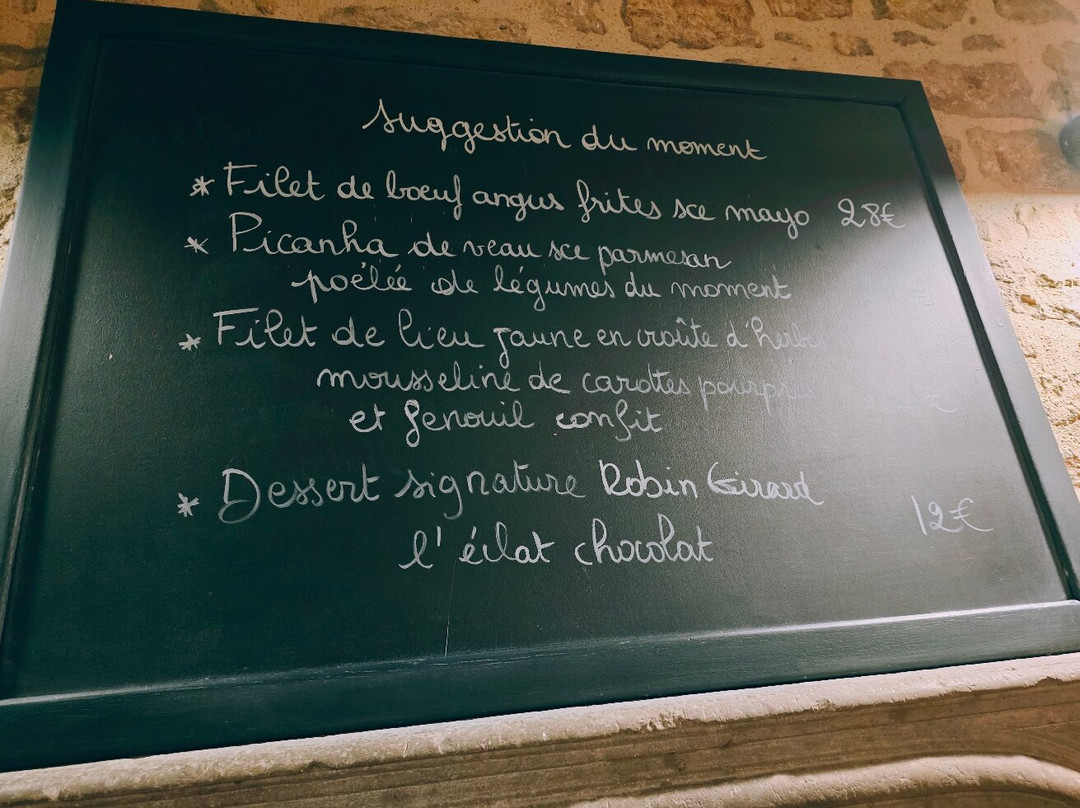 Suggestion du moment
* Filet de bœuf angus frites sce mayo 28€
* Picanha de veau sce parmesan
poêlée de légumes du moment
* Filet de lieu jaune en croûte d'herbe
mousseline de carottes
et fenouil confit
* Dessert signature Robin Girard
l'éclat chocolat 12€